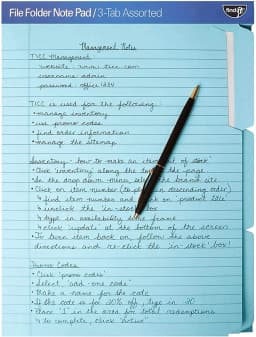 File Folder Note Pad / 3-Tab Assorted
find it
Management Notes
TICC Management
website: www.ticc.com
username: admin
password: office1234
TICC is used for the following:
• manage inventory
• use promo codes
• find order information
• manage the sitemap
Inventory: how to make an item out of stock
• Click "inventory" along the top of the page
• In the drop down menu, select the brand site
• Click on item number (to place in descending order)
↳ find item number and click on "product title"
↳ unclick the "in-stock"
↳ type in availability time frame
↳ click "update" at the bottom of the screen
• To turn item back on, follow the above
directions and re-click the "in-stock" box!
Promo Codes
• Click "promo codes"
• Select "add one code"
• Make a name for the code
• If the code is for 20% off, type in 20
• Place "1" in the area for total redemptions
↳ To complete, click "active"